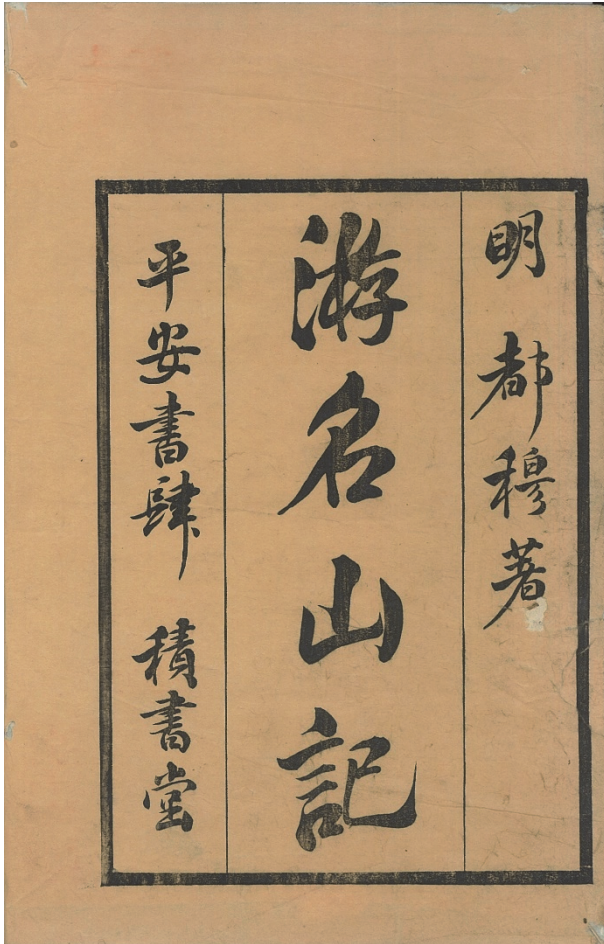 明 都穆著
游名山記
平安書肆 積書堂